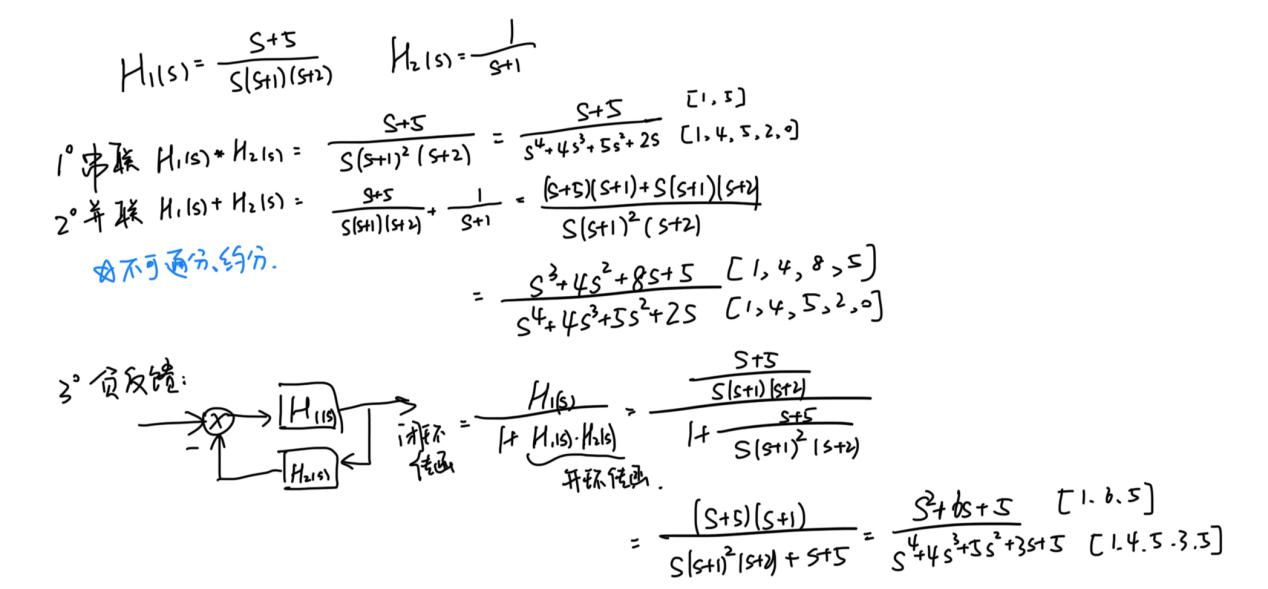 H₁(s) = (s+5)/(s(s+1)(s+2))    H₂(s) = 1/(s+1)
1° 串联 H₁(s)*H₂(s) = (s+5)/(s(s+1)²(s+2)) = (s+5)/(s⁴+4s³+5s²+2s) [1,5] [1,4,5,2,0]
2° 并联 H₁(s)+H₂(s) = (s+5)/(s(s+1)(s+2)) + 1/(s+1) = ((s+5)(s+1)+s(s+1)(s+2))/(s(s+1)²(s+2))
☆不可通分、约分.
= (s³+4s²+8s+5)/(s⁴+4s³+5s²+2s) [1,4,8,5] [1,4,5,2,0]
3° 负反馈:
× − H₁(s) H₂(s)
闭环传函 = H₁(s)/(1+H₁(s)·H₂(s)) = ((s+5)/(s(s+1)(s+2)))/(1+(s+5)/(s(s+1)²(s+2)))
开环传函.
= ((s+5)(s+1))/(s(s+1)²(s+2)+s+5) = (s²+6s+5)/(s⁴+4s³+5s²+3s+5) [1.6.5] [1.4.5.3.5]